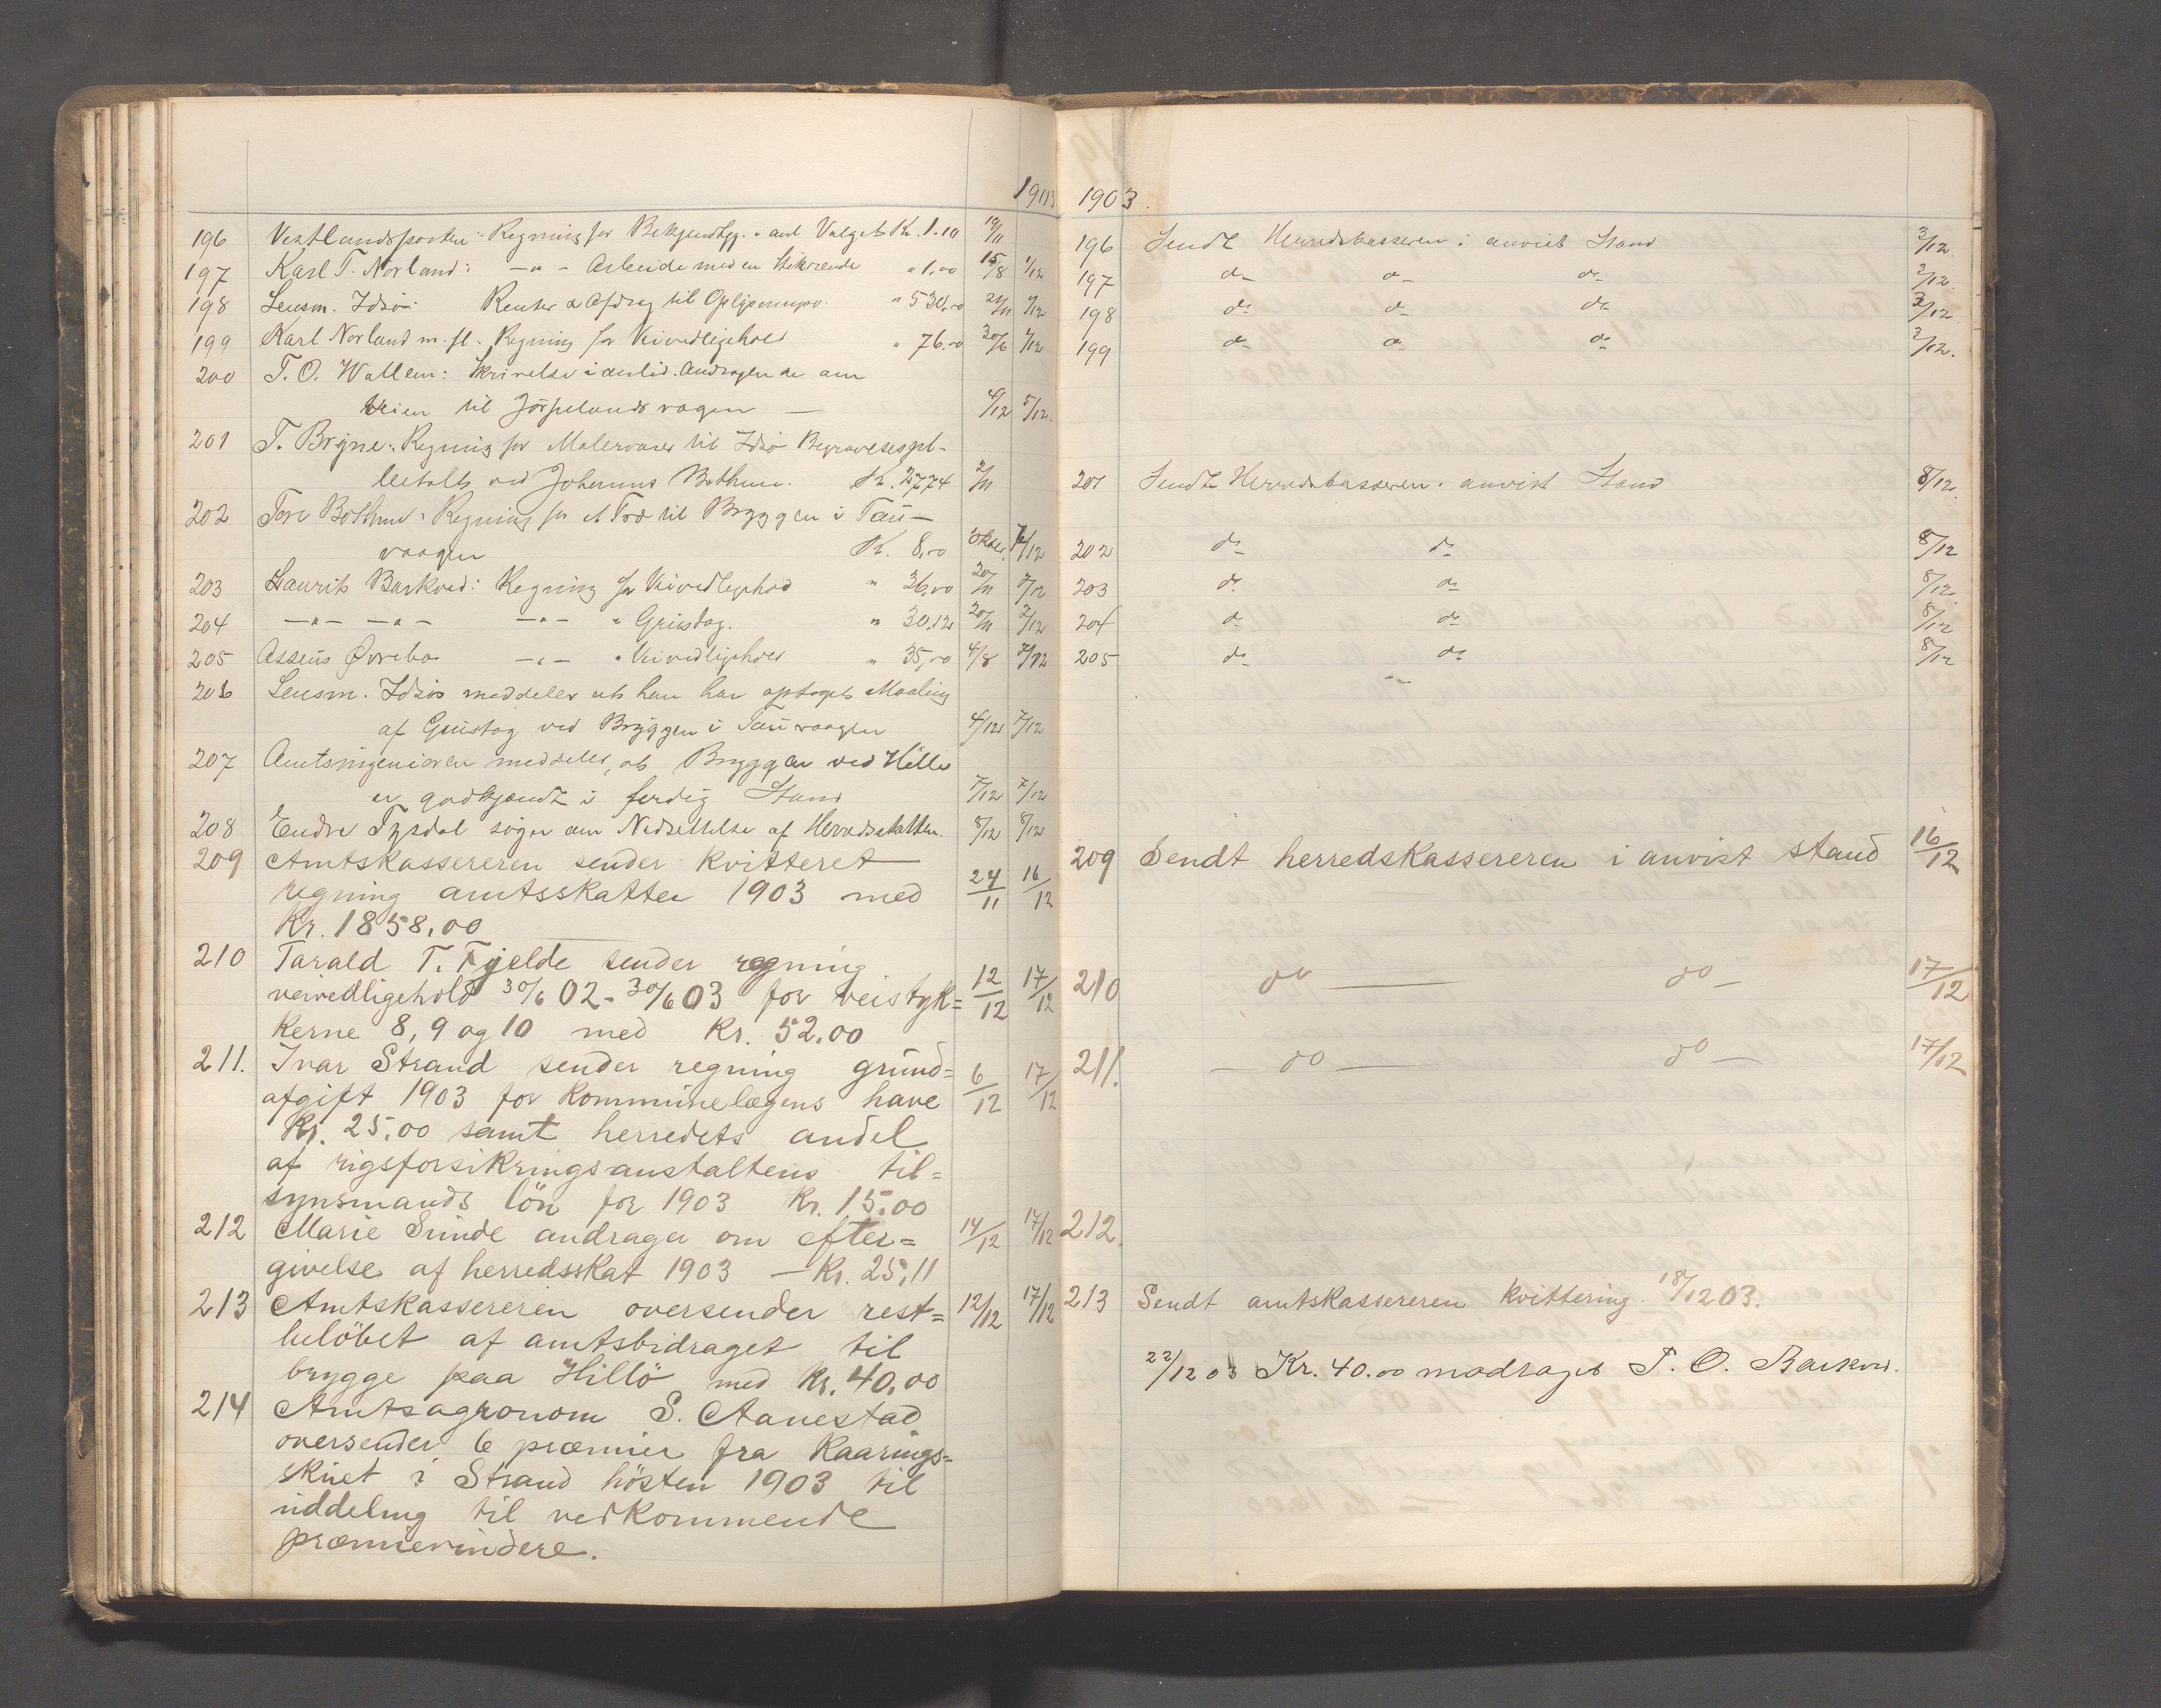 1903
196 Vestlandsposten: Regning for Bekjendtgj. anl Valget Kr. 1.10
197 Karl T. Norland: —"— Arbeide med en " 1,00 15/8 1/12
198 Lensm. Idsø: Renter & Afdrag til " 530,00
199 Karl Norland m. fl. Regning for Veivedligehold " 76.00 30/6 1/12
200 T. O. Wallem: Skrivelse i anled. Andragende om
Veien til Jørpelandsvagen — 4/12 5/12
201 T. Bryne: Regning for Malervarer til Idsø
betalt ved Johannes Bothun. Kr. 27,74 2/11
202 Tore Bothun: Regning for et Træ til Bryggen i Tau-
vaagen Kr. 8,00 7/12
203 Laurits Barkved: Regning for Veivedligehold " 36,00 20/11 7/12
204 —"— —"— —"— " Grustag. " 30,12 20/11 7/12
205 Assens Øvrebø —"— " Veivedligehold " 35,00 4/8 7/12
206 Lensm. Idsøe meddeler at han har optaget Maaling
af Grustag ved Bryggen i Tauvaagen 4/12 7/12
207 Amtsingeniøren meddeler, at Bryggen ved Hille
er godkjendt i ferdig Stand 7/12 7/12
208 Endre Tysdal søger om Nedsettelse af Herredsskatten. 8/12 8/12
209 Amtskassereren sender kvitteret
regning amtsskatten 1903 med 24/11 16/12
Kr. 1858,00
210 Tarald T. Fjelde sender regning
veivedligehold 30/6 02 - 30/6 03 for veistyk= 12/12 17/12
kerne 8, 9 og 10 med Kr. 52,00
211. Ivar Strand sender regning grund=
afgift 1903 for kommunelægens have 6/12 17/12
Kr. 25,00 samt herredets andel
af rigsforsikringsanstaltens til=
synsmands løn for 1903 Kr. 15.00
212 Marie Sunde andrager om efter= 14/12 17/12
givelse af herredsskat 1903 — Kr. 25,11
213 Amtskassereren oversender rest= 12/12 17/12
beløbet af amtsbidraget til
brygge paa Hillö med Kr. 40,00
214 Amtsagronom S. Aanestad
oversender 6 præmier fra Kaarings=
skuet i Strand hösten 1903 til
uddeling til vedkommende
præmievindere.
1903.
196 Sendt Herredskasseren i anvist Stand 3/12.
197 do do do 3/12.
198 do do do 3/12.
199 do do do 3/12.
201 Sendt Herredskasseren i anvist Stand 8/12.
202 do do 8/12
203 do do 8/12.
204 do do 8/12
205 do do 8/12
209 Sendt herredskassereren i anvist stand 16/12
210 do — do — 17/12
211. — do — do — 17/12
212.
213 Sendt amtskassereren kvittering. 18/12 03.
22/12 03 Kr. 40.00 modraget T. O. Barkved.